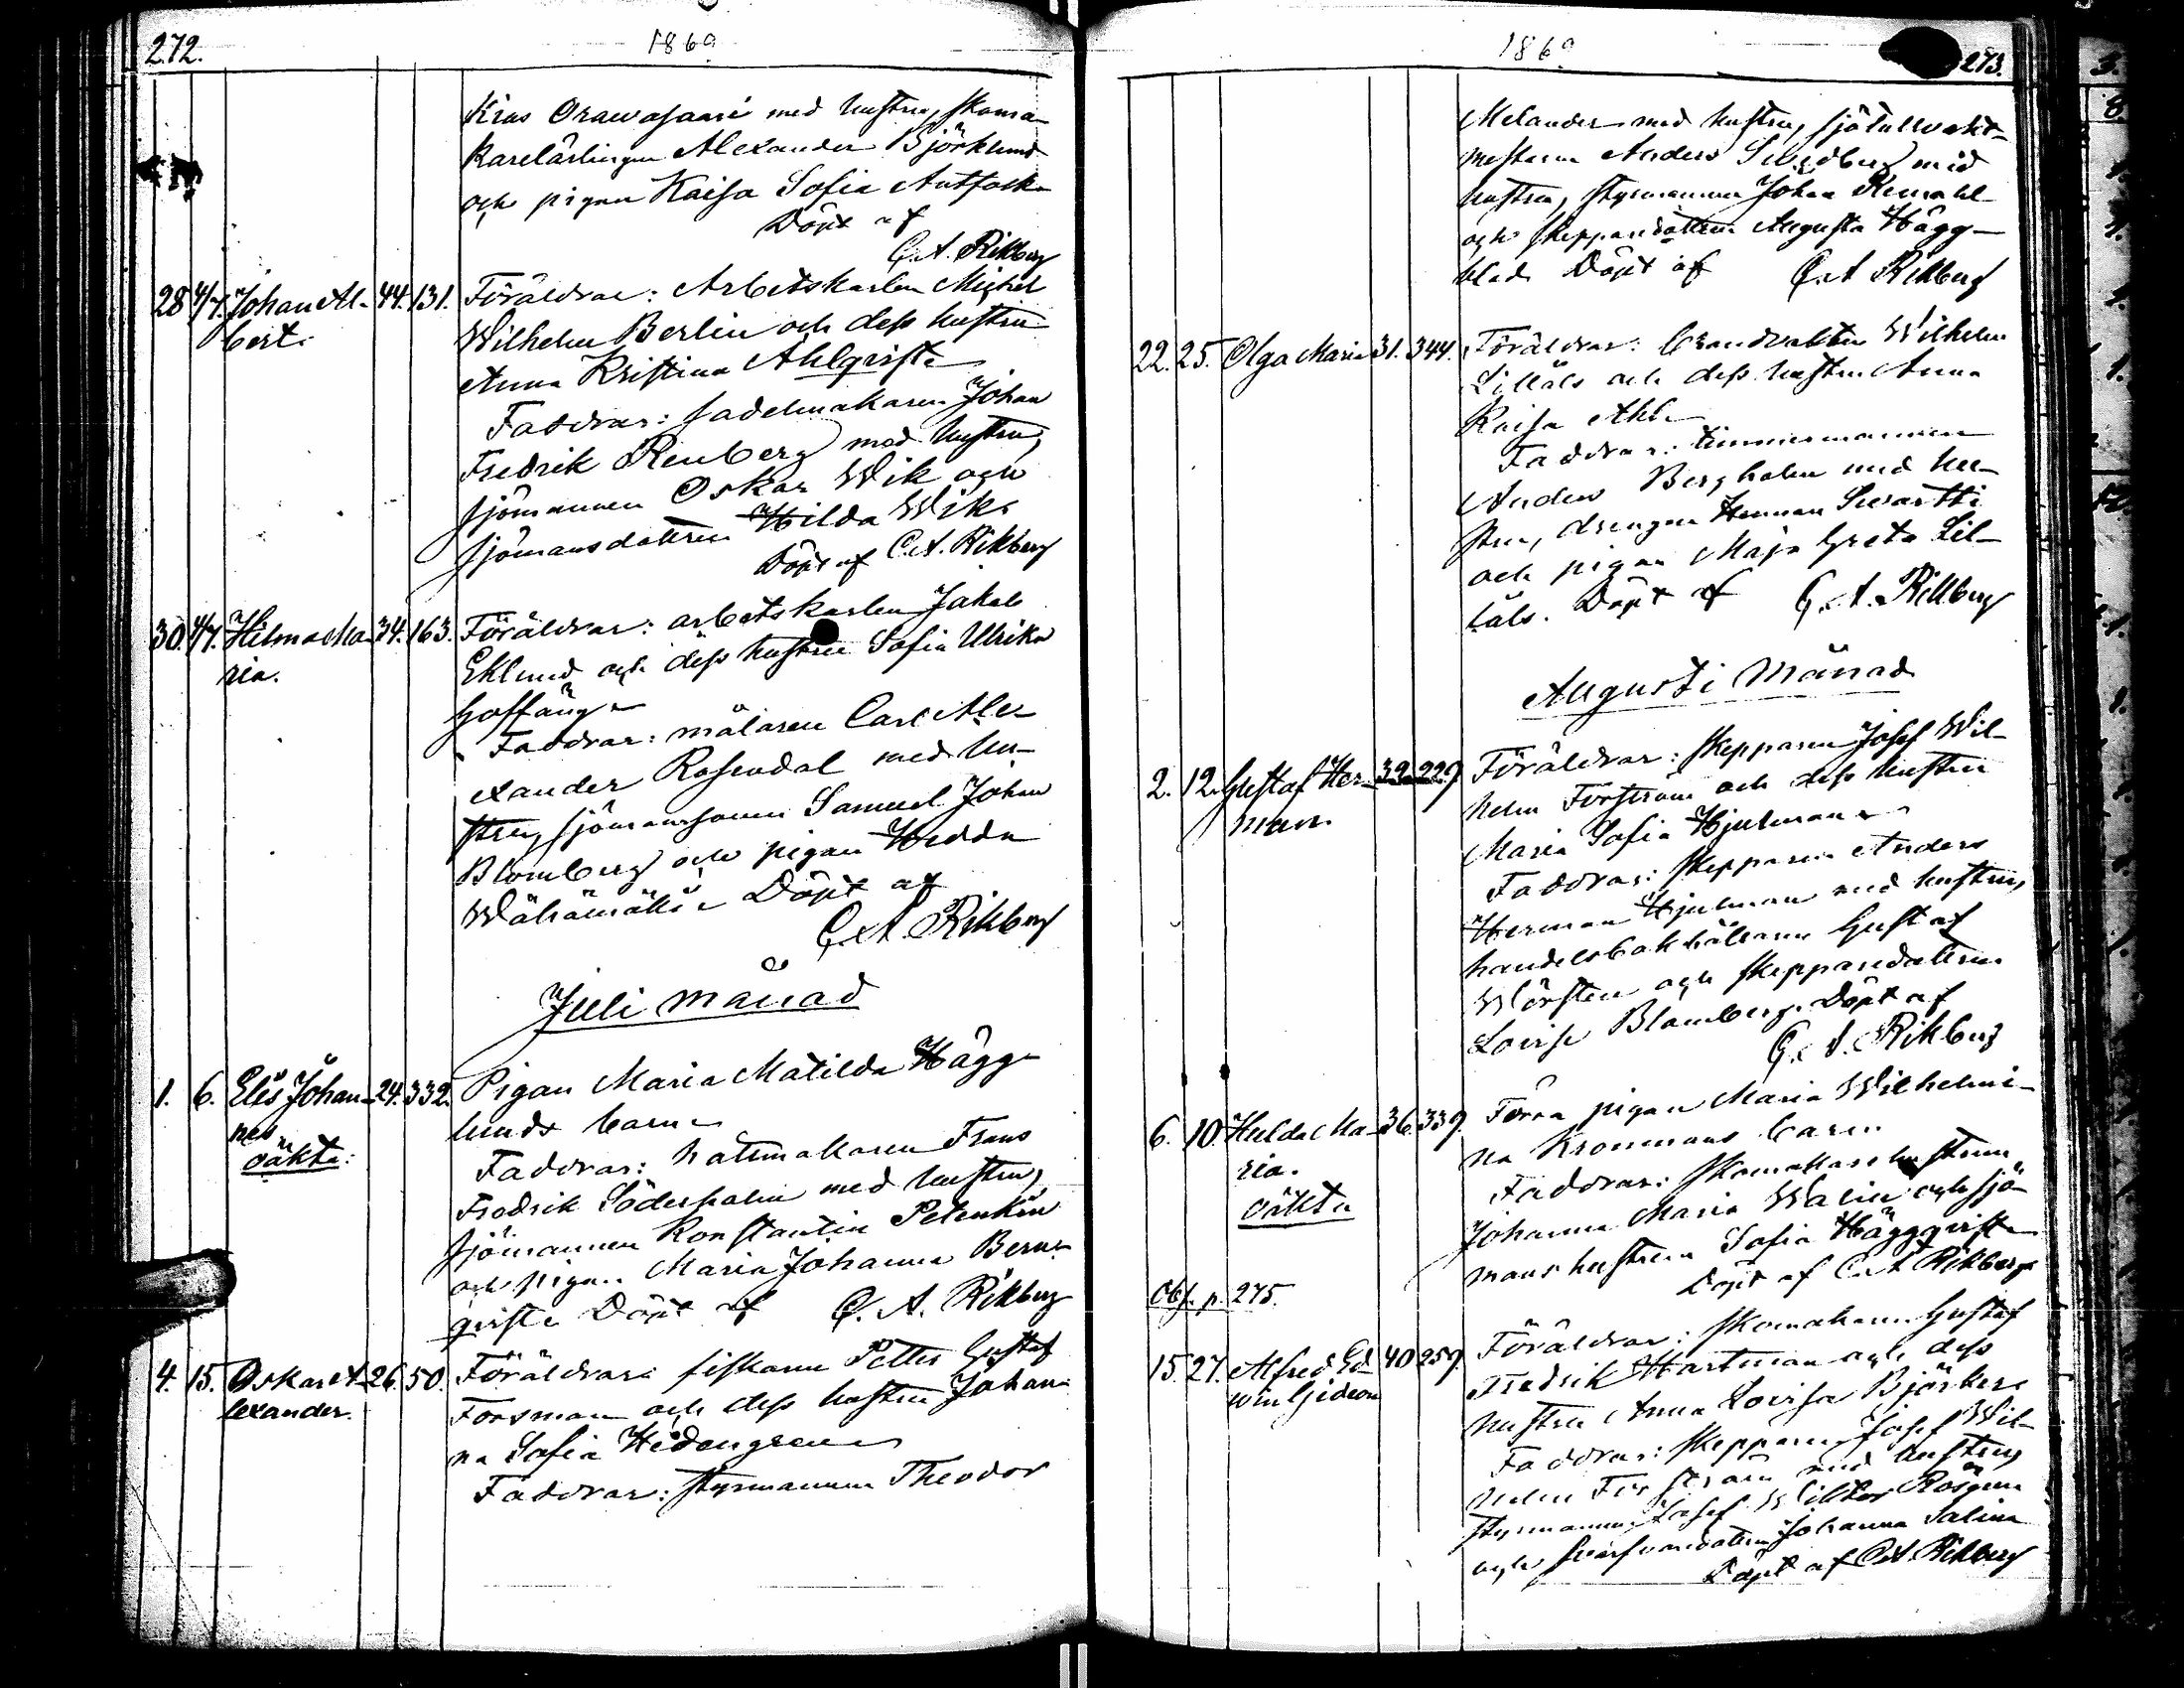 272.
1869
Kius Orawasaari med hustru, skoma-
karelärlingen Alexander Björklund
och pigan Kaisa Sofia
Döpt af
C. A. Rikberg
28 4/7. Johan Al- 44. 131. Föräldrar: Arbetskarlen Michel
bert. Wilhelm Berlin och dess hustru
Anna Kristina Ahlqvist.
Faddrar: sadelmakaren Johan
Fredrik Renberg med hustru,
sjömannen Oskar Wik och
sjömansdottren Hilda Wik.
Döpt af C. A. Rikberg
30. 4/7. Hilma Ma- 34. 163. Föräldrar: arbetskarlen Jakob
ria. Eklund och dess hustru Sofia Ulrika
Hoffäng.
Faddrar: målaren Carl Al-
exander Rosendal med hu-
stru, sjömanssonen Samuel Johan
Blomberg och pigan Hedda
Wähämäki. Döpt af
C. A. Rikberg
Juli månad
1. 6. Elis Johan- 24. 332. Pigan Maria Matilda Hägg-
nes lunds barn.
oäkta: Faddrar: hattmakaren Frans
Fredrik Söderholm med hustru,
sjömannen Konstantin Petenkin
och pigan Maria Johanna Bern-
qvist. Döpt af C. A. Rikberg
4. 15. Oskar A- 26. 50. Föräldrar: fiskaren Petter Gustaf
lexander. Forsman och dess hustru Johan-
na Sofia Hedengren.
Faddrar: styrmannen Theodor
1869
273.
Melander med hustru, sjötullvakt-
mästaren Anders Swedberg med
hustru, styrmannen Johan
och skepparedottren Augusta Hägg-
blad. Döpt af C. A. Rikberg
22. 25. Olga Maria 31. 344. Föräldrar: brandvakten Wilhelm
Silläls och dess hustru Anna
Kaisa Ahl.
Faddrar: timmermannen
Anders Bergholm med hu-
stru, drengen Herman Swartti
och pigan Maja Greta Sil-
läls. Döpt af C. A. Rikberg
Augusti månad
2. 12. Gustaf Her- 32. 229. Föräldrar: skepparen Josef Wil-
man. helm Forsström och dess hustru
Maria Sofia Hjulman.
Faddrar: skepparen Anders
Herman Hjulman med hustru,
handelsbokhållaren Gustaf
Wörsten och skepparedottren
Lovisa Blomberg. Döpt af
C. A. Rikberg
6. 10. Hulda Ma- 36. 339. Förra pigan Maria Wilhelmi-
ria. na Kronmans barn.
oäkta Faddrar: skomakarehustrun
Johanna Maria Walin och sjö-
manshustrun Sofia Häggqvist.
Döpt af C. A. Rikberg
Obs. p. 275.
15. 27. Alfred Ed- 40 259. Föräldrar: skomakaren Gustaf
win Gideon Fredrik Hartman och dess
hustru Anna Lovisa Björkberg
Faddrar: skepparen Josef Wil-
helm Forsström med hustru,
styrmannen Josef Wiktor Rosgren
och Johanna Salin
Döpt af C. A. Rikberg
3.